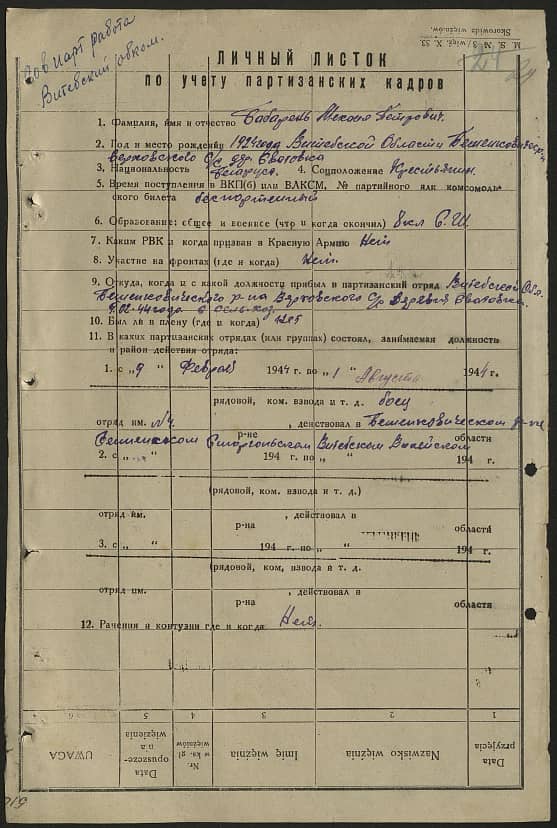 М. S. № 3 / więź. X. 53.
Skorowidz więźniów.
совпарт работа
Витебский обком.
24
ЛИЧНЫЙ ЛИСТОК
по учету партизанских кадров
1. Фамилия, имя и отчество Бабарень Петрович.
2. Год и место рождения 1924 года Витебской Области Бешенковичск. р-н
Верховского С/С дер.
3. Национальность Беларус. 4. Соцположение Крестьянин.
5. Время поступления в ВКП(б) или ВЛКСМ, № партийного или комсомоль-
ского билета беспартейный
6. Образование: общее и военное (что и когда окончил) 8 кл С. Ш.
7. Каким РВК и когда призван в Красную Армию Нет
8. Участие на фронтах (где и когда) Нет.
9. Откуда, когда и с какой должности прибыл в партизанский отряд Витебской Обл.
Бешенковического р-на Верховского С/С Деревня
9.02-44 года с
10. Был ли в плену (где и когда) нет
11. В каких партизанских отрядах (или группах) состоял, занимаемая должность
и район действия отряда:
1. с „9 “ Феврал 1944 г. по „1 “ Августа 1944 г.
рядовой, ком. взвода и т. д. боец
отряд им. №4. , действовал в Бешенковическом р-не
р-не Витебском Вилейском области
2. с „ “ 194 г. по „ “ 194 г.
(рядовой, ком. взвода и т. д.)
отряд им. , действовал в
р-на области
3. с „ “ 194 г. по „ “ 194 г.
(рядовой, ком, взвода и т. д.
отряд им. , действовал в
р-на области
12. Ранения и контузии где и когда Нет.
1 2 3 4 5 6
Data przyjęcia
Nazwisko więźnia
Imię więźnia
Nr. w ks. gł. więźniów
Data opuszczenia więzienia
UWAGA